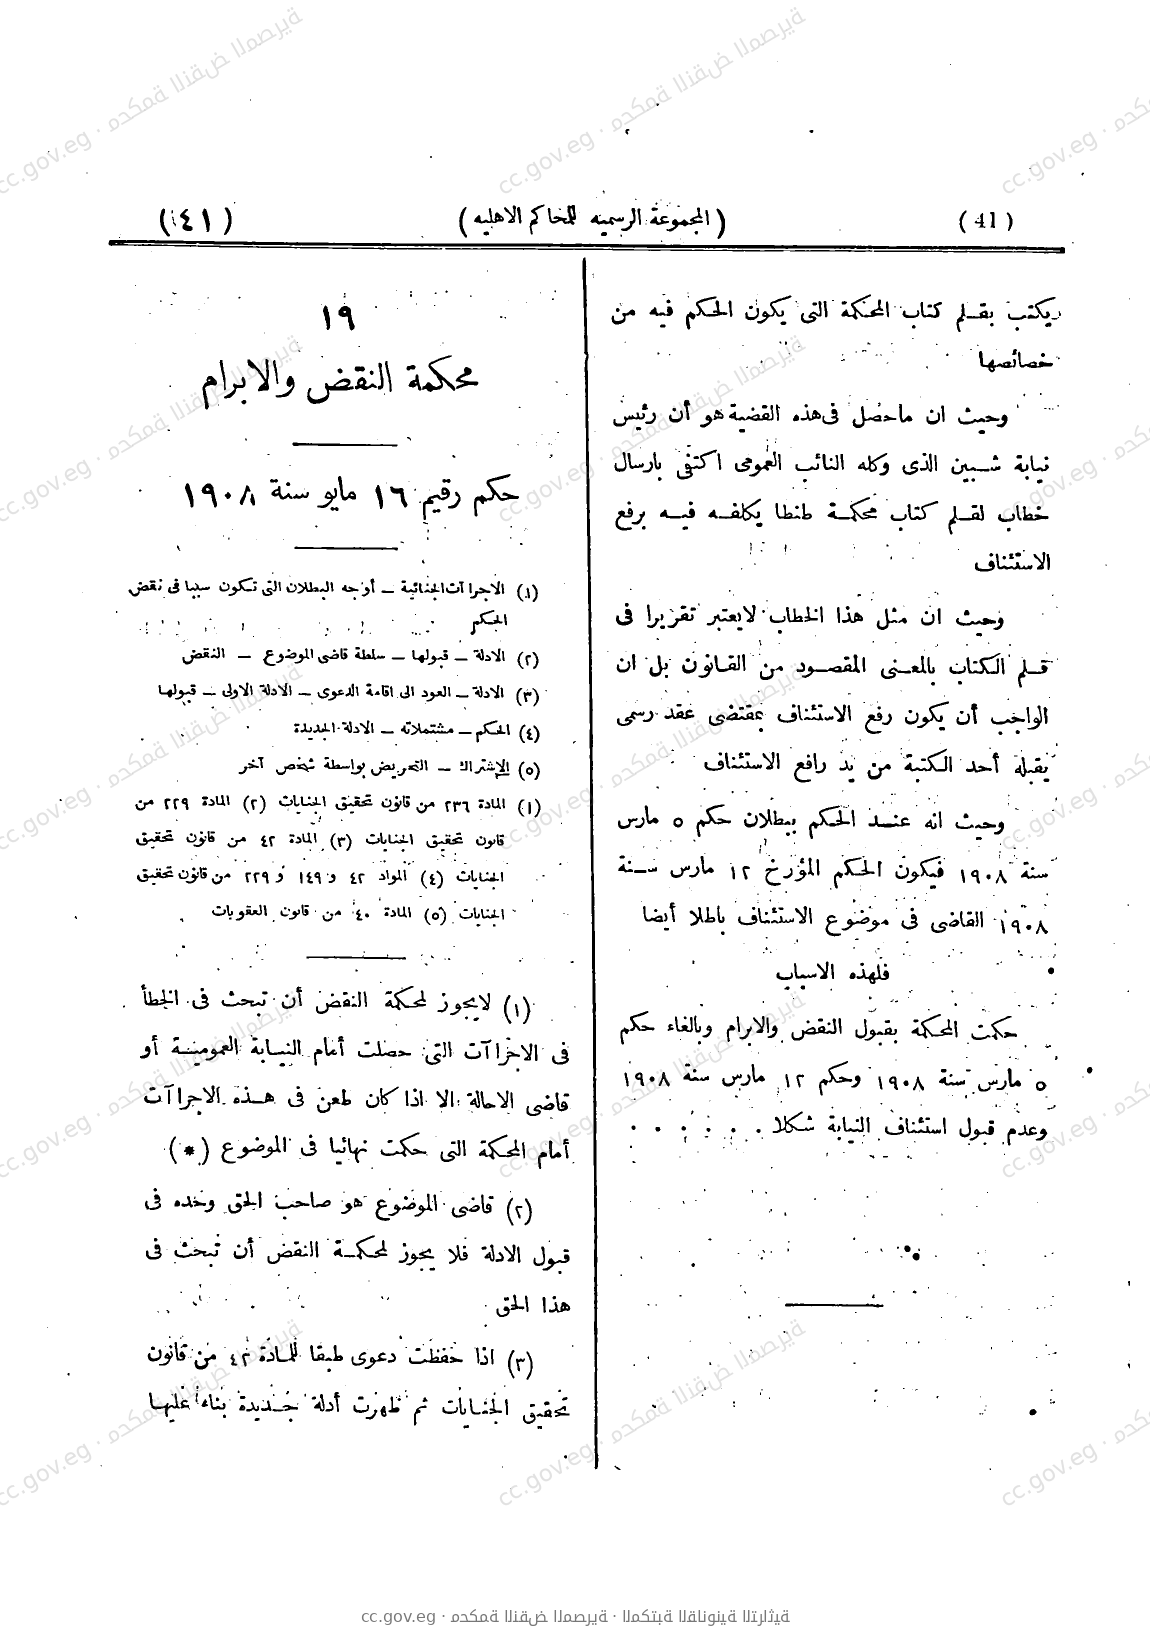 (41) (المجموعة الرسميه للمحاكم الاهليه) (٤١)
يكتب بقلم كتاب المحكمة التى يكون الحكم فيه من
خصائصها
وحيث ان ماحصل فى هذه القضية هو أن رئيس
نيابة شبين الذى وكله النائب العمومى اكتفى بارسال
خطاب لقلم كتاب محكمة طنطا يكلفه فيه برفع
الاستئناف
وحيث ان مثل هذا الخطاب لايعتبر تقريرا فى
قلم الكتاب بالمعنى المقصود من القانون بل ان
الواجب أن يكون رفع الاستئناف بمقتضى عقد رسمى
يقبله أحد الكتبة من يد رافع الاستئناف
وحيث انه عند الحكم ببطلان حكم ٥ مارس
سنة ١٩٠٨ فيكون الحكم المؤرخ ١٢ مارس سنة
١٩٠٨ القاضى فى موضوع الاستئناف باطلا أيضا
فلهذه الاسباب
حكمت المحكمة بقبول النقض والابرام وبالغاء حكم
٥ مارس سنة ١٩٠٨ وحكم ١٢ مارس سنة ١٩٠٨
وعدم قبول استئناف النيابة شكلا . . . . . .
١٩
محكمة النقض والابرام
حكم رقيم ١٦ مايو سنة ١٩٠٨
(١) الاجراآت الجنائية – أوجه البطلان التى تكون سببا فى نقض
الحكم
(٢) الادلة – قبولها – سلطة قاضى الموضوع – النقض
(٣) الادلة – العود الى اقامة الدعوى – الادلة الاولى – قبولها
(٤) الحكم – مشتملاته – الادلة الجديدة
(٥) الاشتراك – التحريض بواسطة شخص آخر
(١) المادة ٢٣٦ من قانون تحقيق الجنايات (٢) المادة ٢٢٩ من
قانون تحقيق الجنايات (٣) المادة ٤٢ من قانون تحقيق
الجنايات (٤) المواد ٤٢ و ١٤٩ و ٢٢٩ من قانون تحقيق
الجنايات (٥) المادة ٤٠ من قانون العقوبات
(١) لايجوز لمحكمة النقض أن تبحث فى الخطأ
فى الاجراآت التى حصلت أمام النيابة العمومية أو
قاضى الاحالة الا اذا كان طعن فى هذه الاجراآت
أمام المحكمة التى حكمت نهائيا فى الموضوع (*)
(٢) قاضى الموضوع هو صاحب الحق وحده فى
قبول الادلة فلا يجوز لمحكمة النقض أن تبحث فى
هذا الحق
(٣) اذا حفظت دعوى طبقا للمادة ٤٢ من قانون
تحقيق الجنايات ثم ظهرت أدلة جديدة بناء عليها
cc.gov.eg · محكمة النقض المصرية · المكتبة القانونية التراثية